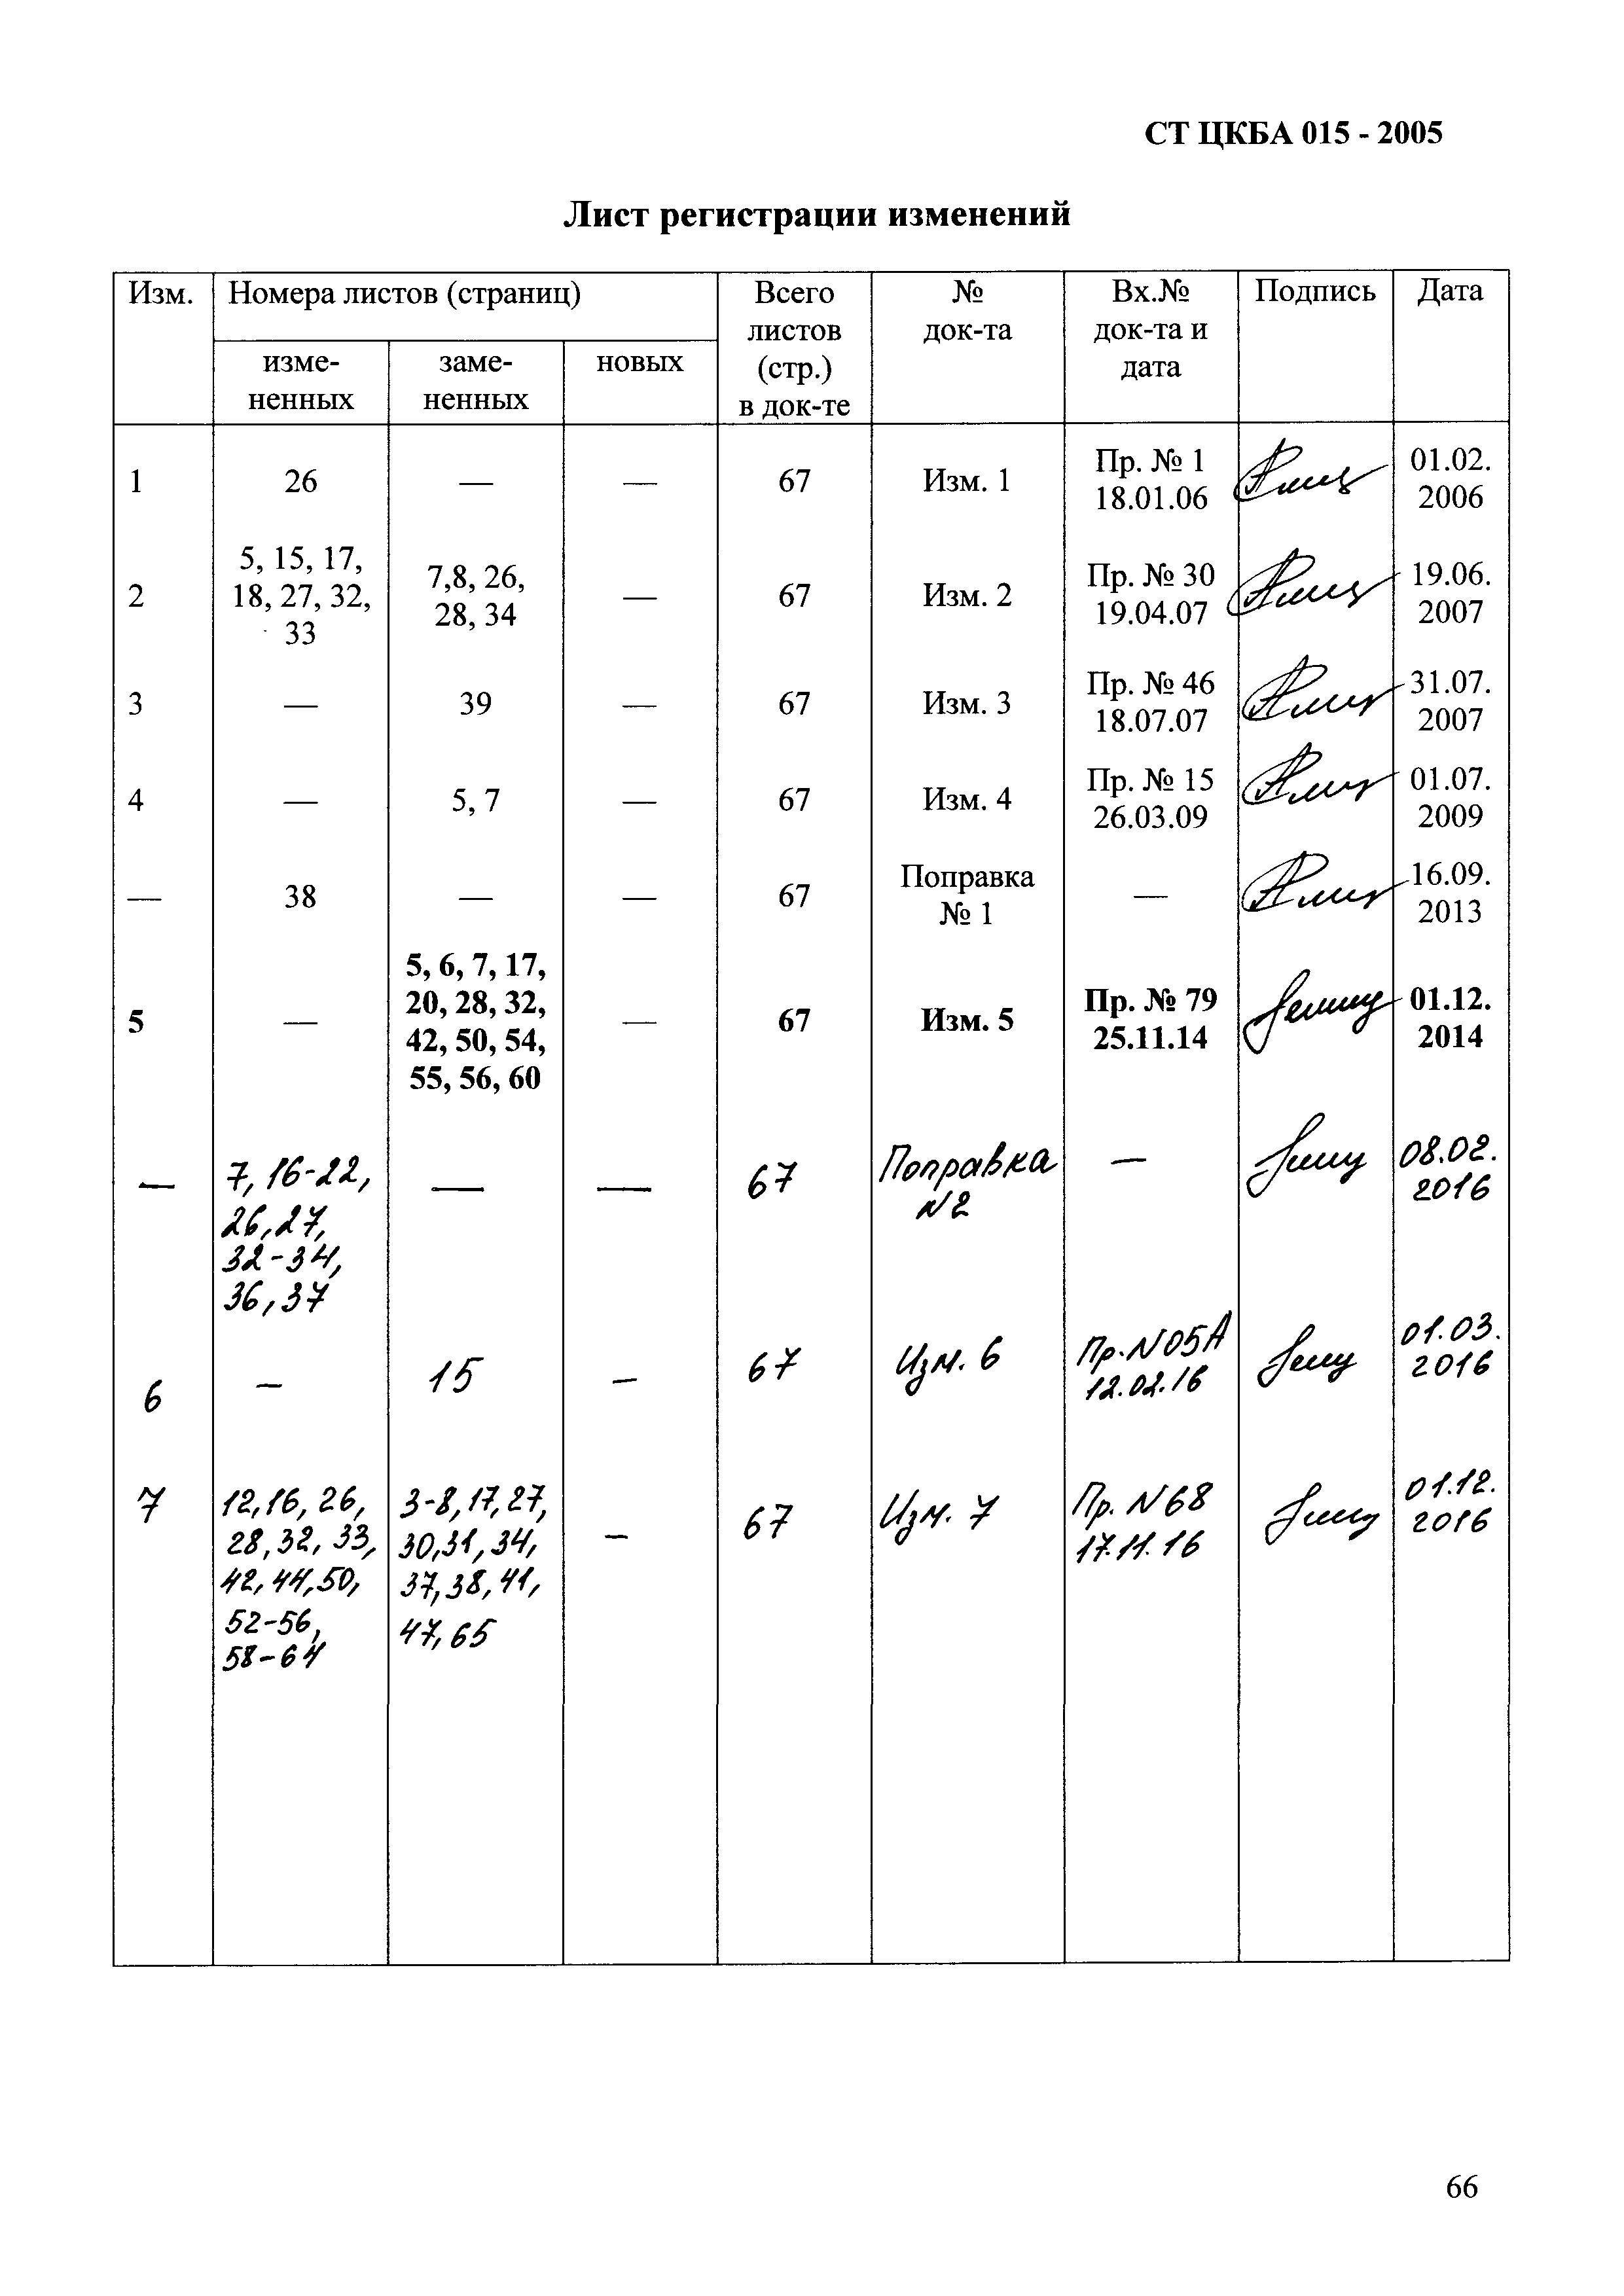 СТ ЦКБА 015 - 2005
Лист регистрации изменений
Изм.
Номера листов (страниц)
изме-
ненных
заме-
ненных
новых
Всего
листов
(стр.)
в док-те
№
док-та
Вх.№
док-та и
дата
Подпись
Дата
1
26
—
—
67
Изм. 1
Пр. № 1
18.01.06
01.02.
2006
2
5, 15, 17,
18, 27, 32,
33
7,8, 26,
28, 34
—
67
Изм. 2
Пр. № 30
19.04.07
19.06.
2007
3
—
39
—
67
Изм. 3
Пр. № 46
18.07.07
31.07.
2007
4
—
5, 7
—
67
Изм. 4
Пр. № 15
26.03.09
01.07.
2009
—
38
—
—
67
Поправка
№ 1
—
16.09.
2013
5
—
5, 6, 7, 17,
20, 28, 32,
42, 50, 54,
55, 56, 60
—
67
Изм. 5
Пр. № 79
25.11.14
01.12.
2014
—
7, 16-22,
26, 27,
32-34,
36, 37
—
—
67
Поправка
N2
—
08.02.
2016
6
–
15
–
67
Изм. 6
Пр. N05А
12.02.16
01.03.
2016
7
12,16, 26,
28, 32, 33,
42, 44, 50,
52-56,
58-64
3-8, 17, 27,
30, 31, 34,
37, 38, 41,
47, 65
–
67
Изм. 7
Пр. N68
17.11.16
01.12.
2016
66